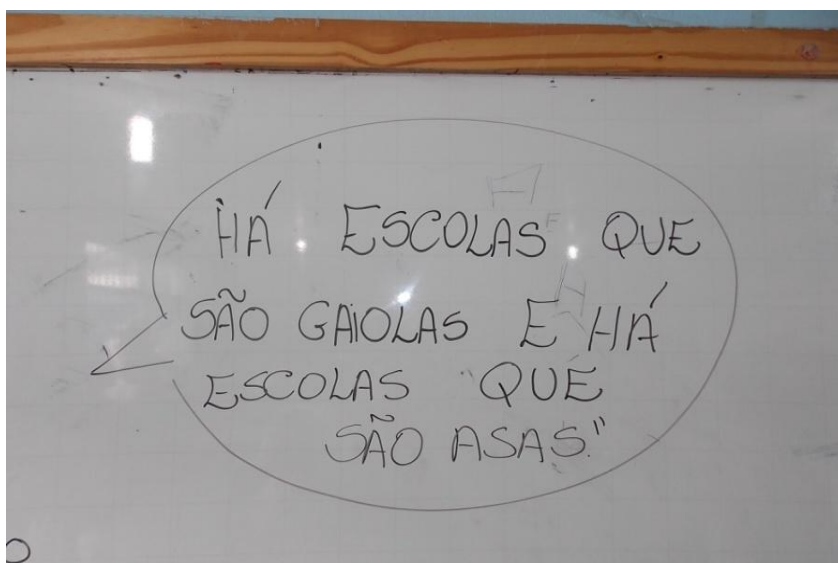 "HÁ ESCOLAS QUE
SÃO GAIOLAS E HÁ
ESCOLAS QUE
SÃO ASAS."